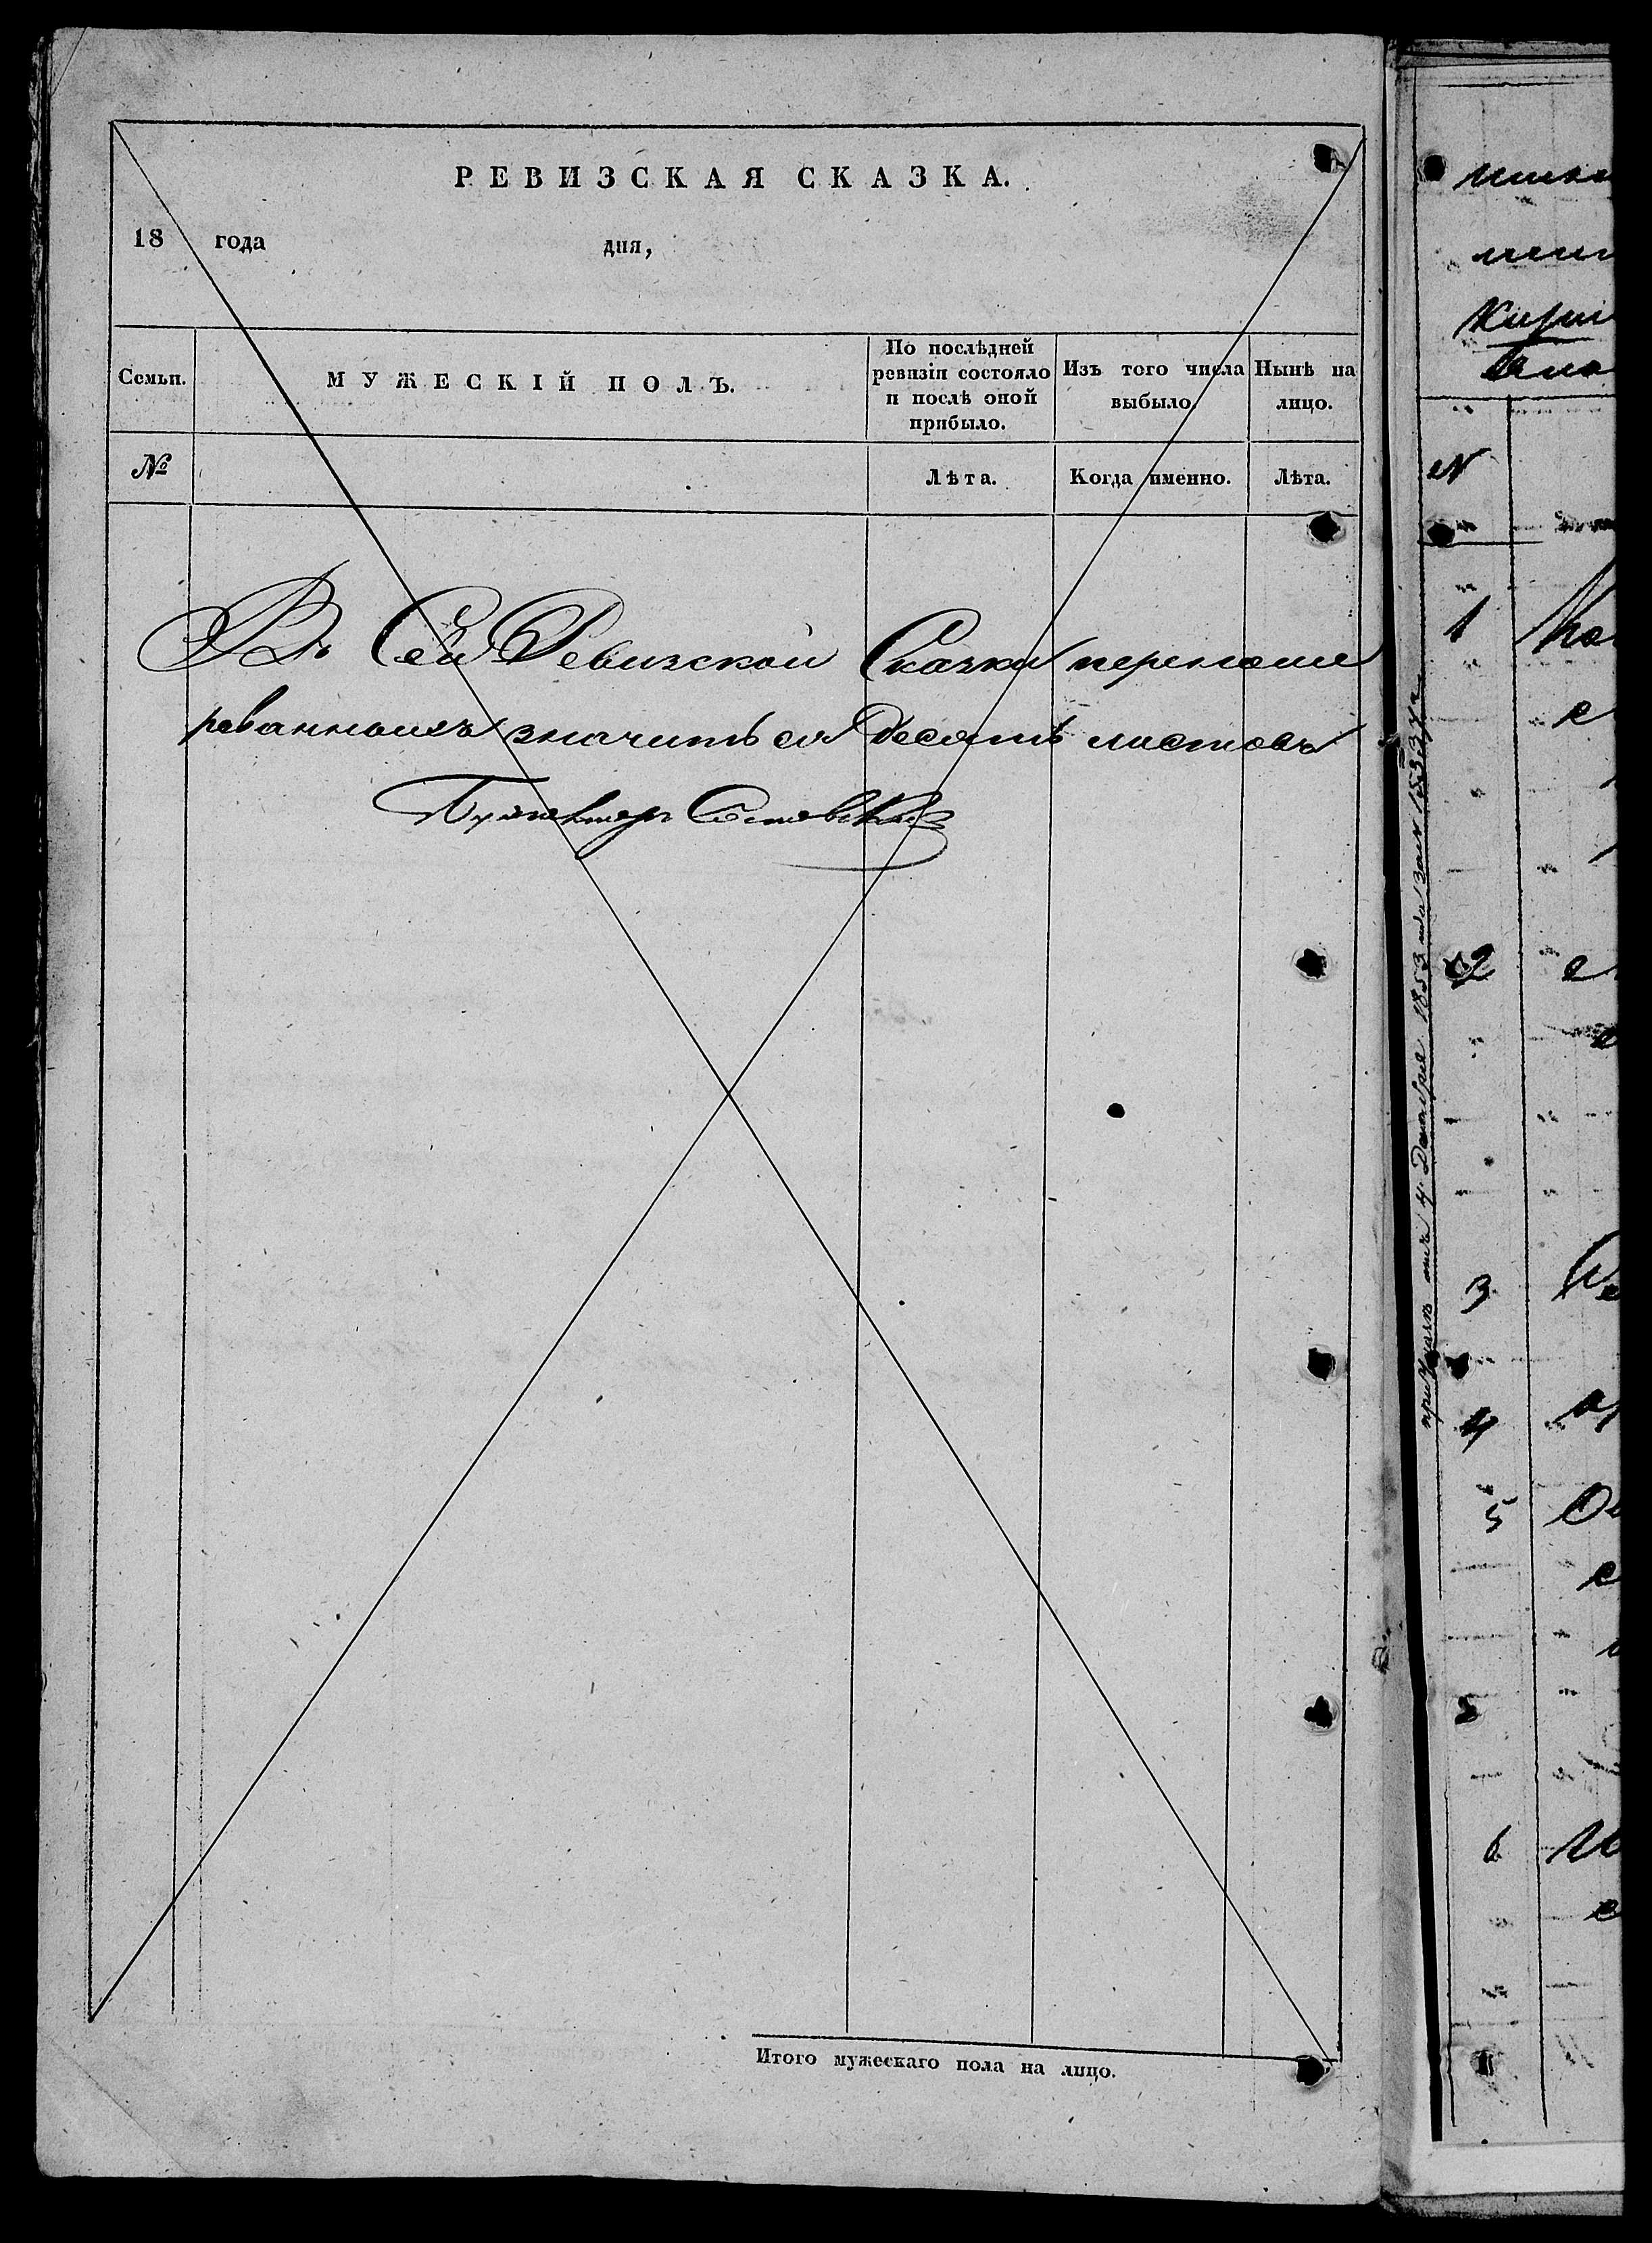 РЕВИЗСКАЯ СКАЗКА.
18 года дня,
Семьи.
МУЖЕСКІЙ ПОЛЪ.
По послѣдней
ревизіи состояло
и послѣ оной
прибыло.
Изъ того числа
выбыло.
Нынѣ на
лицо.
№
Лѣта.
Когда именно.
Лѣта.
Въ Сей Ревизской Сказки переноме
рованныхъ значиться Десять листовъ
Бухгалтеръ
Итого мужескаго пола на лицо.
при Указѣ отъ 4 Декабря 1853 года за №
N
1
2
3
4
5
6